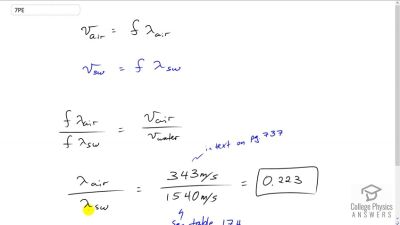 7PE
v_air = f λ_air
v_sw = f λ_sw
f λ_air / f λ_sw = v_air / v_water
in text on pg. 737
λ_air / λ_sw = 343 m/s / 1540 m/s = 0.223
table 17.4
College Physics
ANSWERS